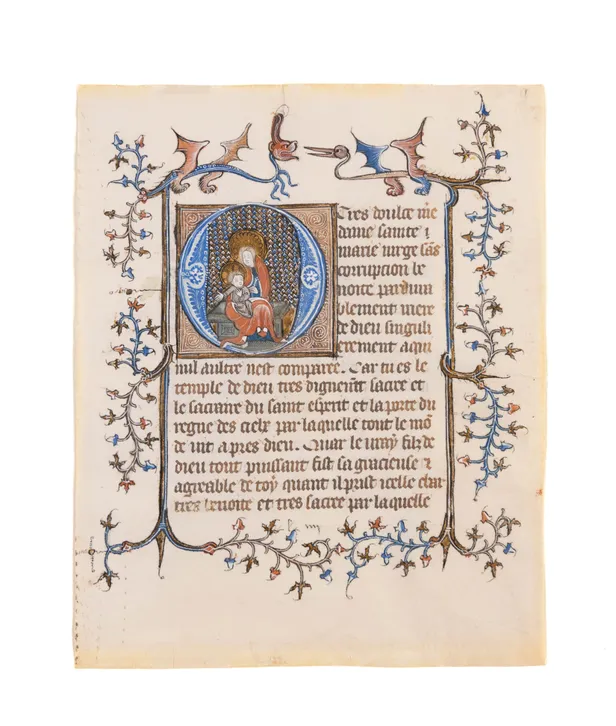 Tres doulce me
dame sainte ⁊
marie virge sās
corrupcion be
noite pardura
blement mere
de dieu singuli
erement a qui
nul aultre nest comparee. Car tu es le
temple de dieu tres dignemt sacre et
le sacraire du saint esperit et la porte du
regne des cielx par laquelle tout le mō
de uit apres dieu. Quar le uray filz de
dieu tout puissant fist sa gracieuse ⁊
agreable de toy quant il prist icelle char
tres benoite et tres sacree par laquelle